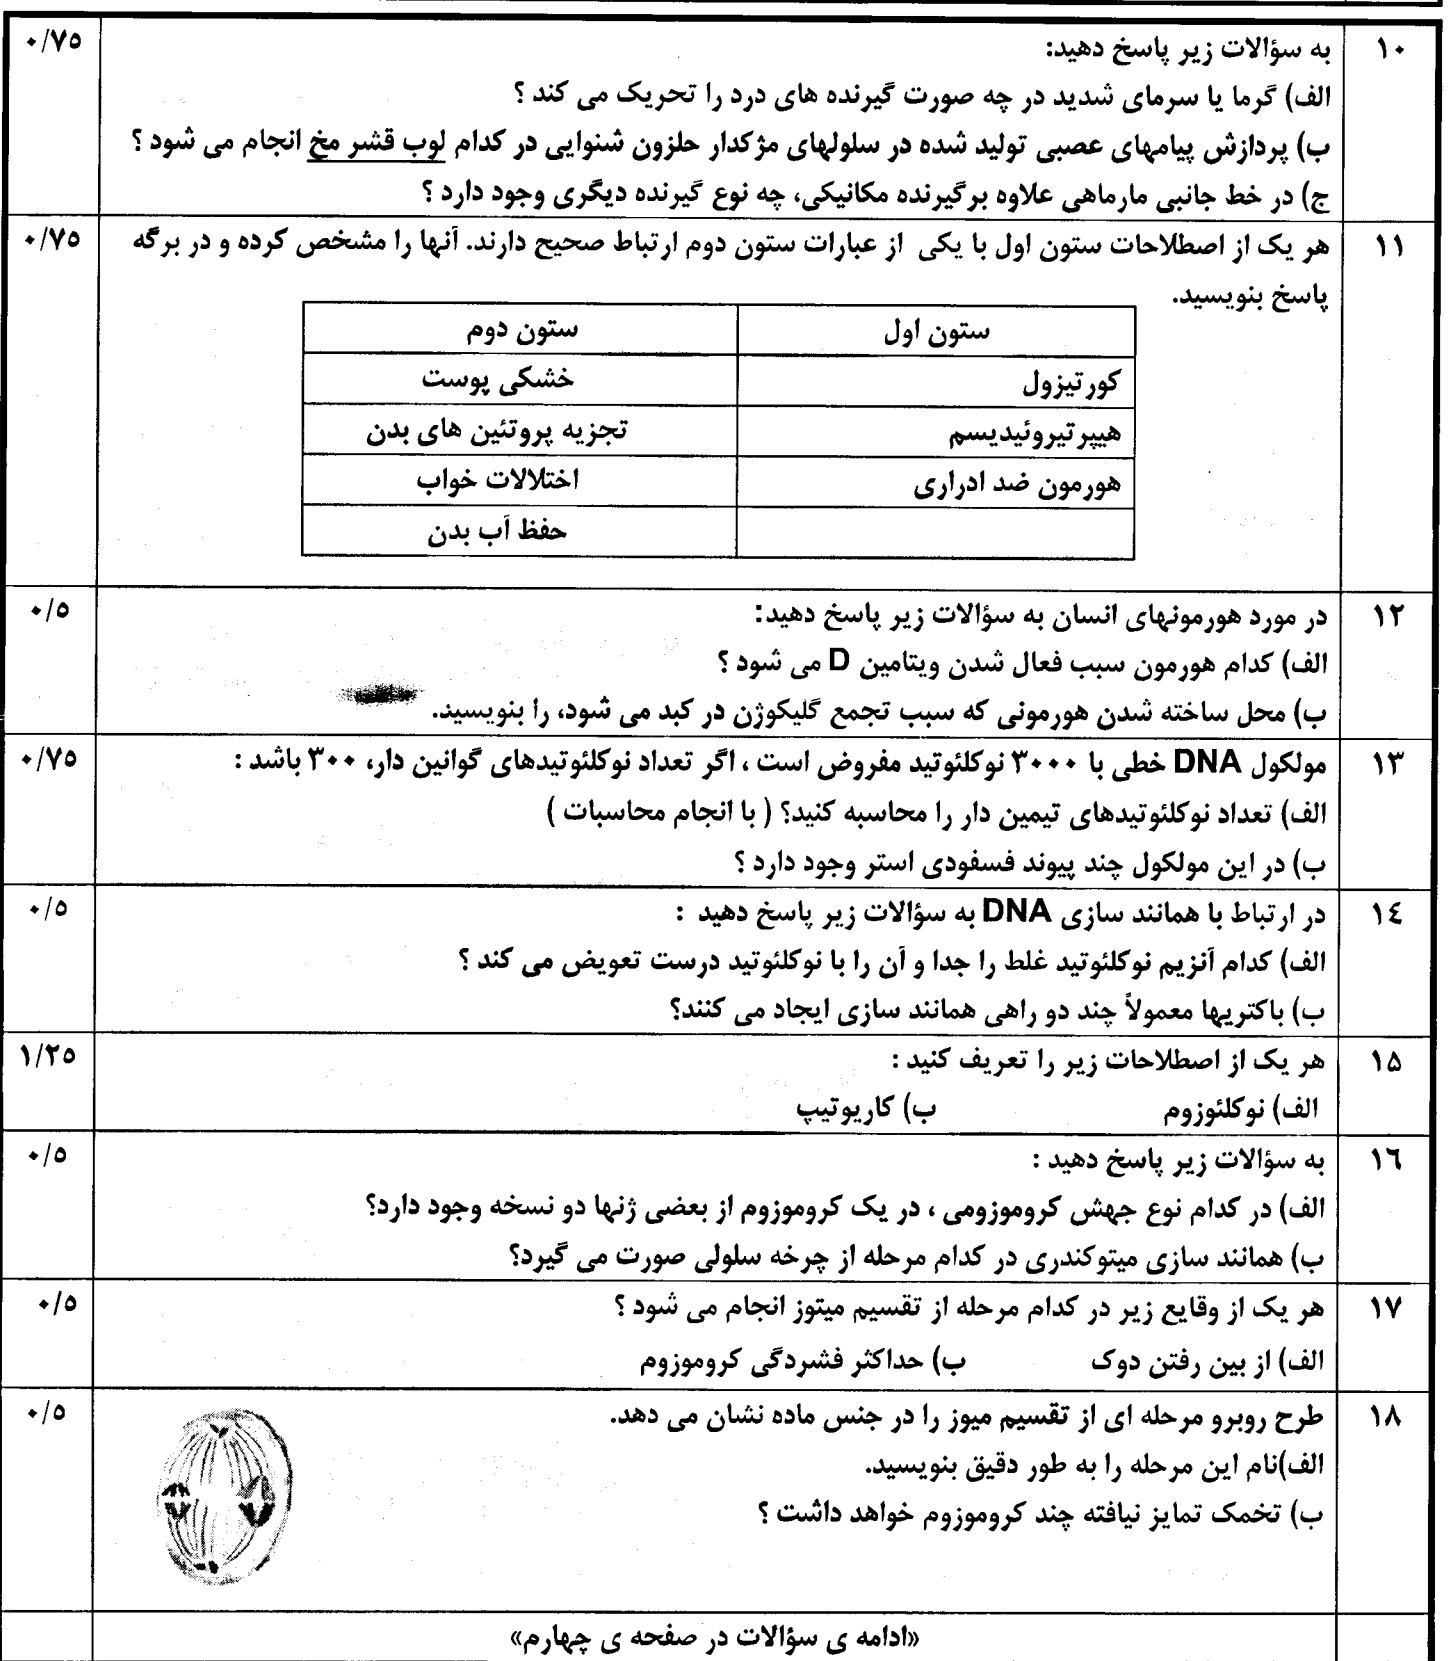 ۱۰ به سؤالات زیر پاسخ دهید: ۰/۷۵
الف) گرما یا سرمای شدید در چه صورت گیرنده های درد را تحریک می کند ؟
ب) پردازش پیامهای عصبی تولید شده در سلولهای مژکدار حلزون شنوایی در کدام لوب قشر مخ انجام می شود ؟
ج) در خط جانبی مارماهی علاوه برگیرنده مکانیکی، چه نوع گیرنده دیگری وجود دارد ؟
۱۱ هر یک از اصطلاحات ستون اول با یکی از عبارات ستون دوم ارتباط صحیح دارند. آنها را مشخص کرده و در برگه ۰/۷۵
پاسخ بنویسید.
ستون اول ستون دوم
کورتیزول خشکی پوست
هیپرتیروئیدیسم تجزیه پروتئین های بدن
هورمون ضد ادراری اختلالات خواب
حفظ آب بدن
۱۲ در مورد هورمونهای انسان به سؤالات زیر پاسخ دهید: ۰/۵
الف) کدام هورمون سبب فعال شدن ویتامین D می شود ؟
ب) محل ساخته شدن هورمونی که سبب تجمع گلیکوژن در کبد می شود، را بنویسید.
۱۳ مولکول DNA خطی با ۳۰۰۰ نوکلئوتید مفروض است ، اگر تعداد نوکلئوتیدهای گوانین دار، ۳۰۰ باشد : ۰/۷۵
الف) تعداد نوکلئوتیدهای تیمین دار را محاسبه کنید؟ ( با انجام محاسبات )
ب) در این مولکول چند پیوند فسفودی استر وجود دارد ؟
۱٤ در ارتباط با همانند سازی DNA به سؤالات زیر پاسخ دهید : ۰/۵
الف) کدام آنزیم نوکلئوتید غلط را جدا و آن را با نوکلئوتید درست تعویض می کند ؟
ب) باکتریها معمولاً چند دو راهی همانند سازی ایجاد می کنند؟
۱۵ هر یک از اصطلاحات زیر را تعریف کنید : ۱/۲۵
الف) نوکلئوزوم ب) کاریوتیپ
۱٦ به سؤالات زیر پاسخ دهید : ۰/۵
الف) در کدام نوع جهش کروموزومی ، در یک کروموزوم از بعضی ژنها دو نسخه وجود دارد؟
ب) همانند سازی میتوکندری در کدام مرحله از چرخه سلولی صورت می گیرد؟
۱۷ هر یک از وقایع زیر در کدام مرحله از تقسیم میتوز انجام می شود ؟ ۰/۵
الف) از بین رفتن دوک ب) حداکثر فشردگی کروموزوم
۱۸ طرح روبرو مرحله ای از تقسیم میوز را در جنس ماده نشان می دهد. ۰/۵
الف)نام این مرحله را به طور دقیق بنویسید.
ب) تخمک تمایز نیافته چند کروموزوم خواهد داشت ؟
«ادامه ی سؤالات در صفحه ی چهارم»